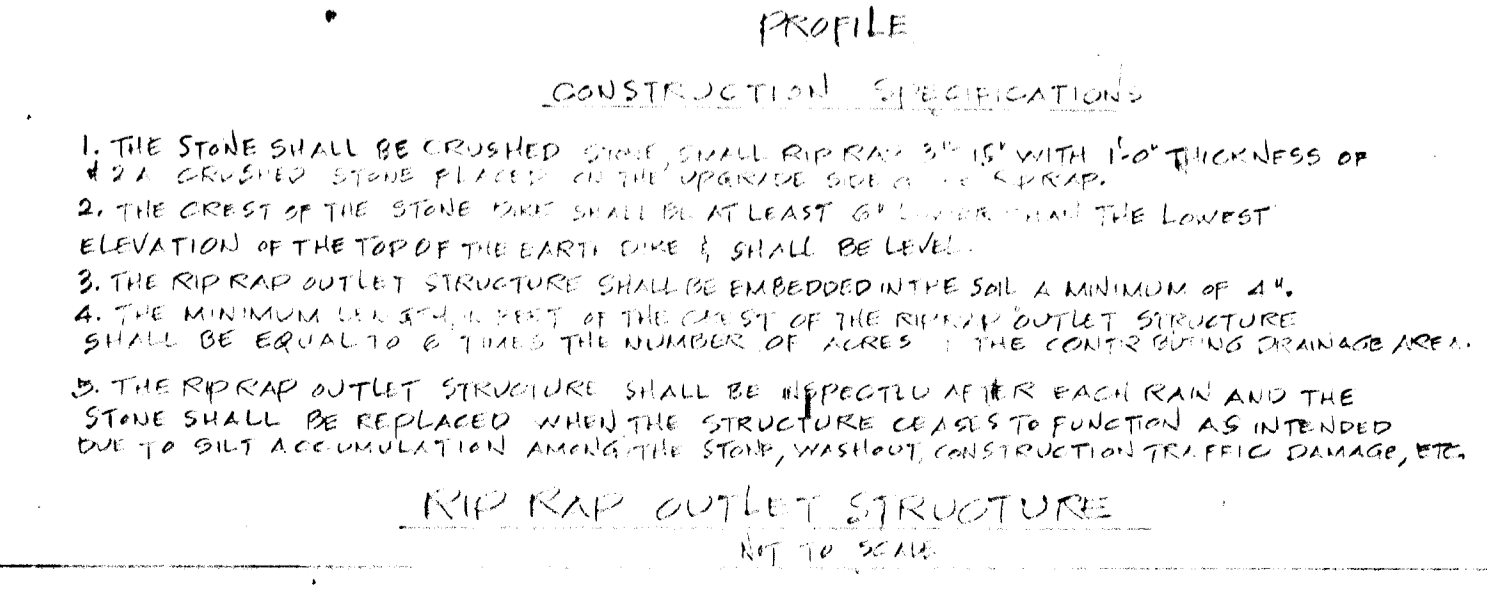 PROFILE
CONSTRUCTION SPECIFICATIONS
1. THE STONE SHALL BE CRUSHED STONE, SMALL RIP RAP 3"-15" WITH 1'-0" THICKNESS OF
# 2A CRUSHED STONE PLACED ON THE UPGRADE SIDE RIPRAP.
2. THE CREST OF THE STONE DIKE SHALL BE AT LEAST 6" LOWER THAN THE LOWEST
ELEVATION OF THE TOP OF THE EARTH DIKE & SHALL BE LEVEL.
3. THE RIP RAP OUTLET STRUCTURE SHALL BE EMBEDDED IN THE SOIL A MINIMUM OF 4".
4. THE MINIMUM LENGTH, FEET OF THE CREST OF THE RIPRAP OUTLET STRUCTURE
SHALL BE EQUAL TO 6 TIMES THE NUMBER OF ACRES THE CONTRIBUTING DRAINAGE AREA.
5. THE RIPRAP OUTLET STRUCTURE SHALL BE INSPECTED AFTER EACH RAIN AND THE
STONE SHALL BE REPLACED WHEN THE STRUCTURE CEASES TO FUNCTION AS INTENDED
DUE TO SILT ACCUMULATION AMONG THE STONE, WASHOUT, CONSTRUCTION TRAFFIC DAMAGE, ETC.
RIP RAP OUTLET STRUCTURE
NOT TO SCALE